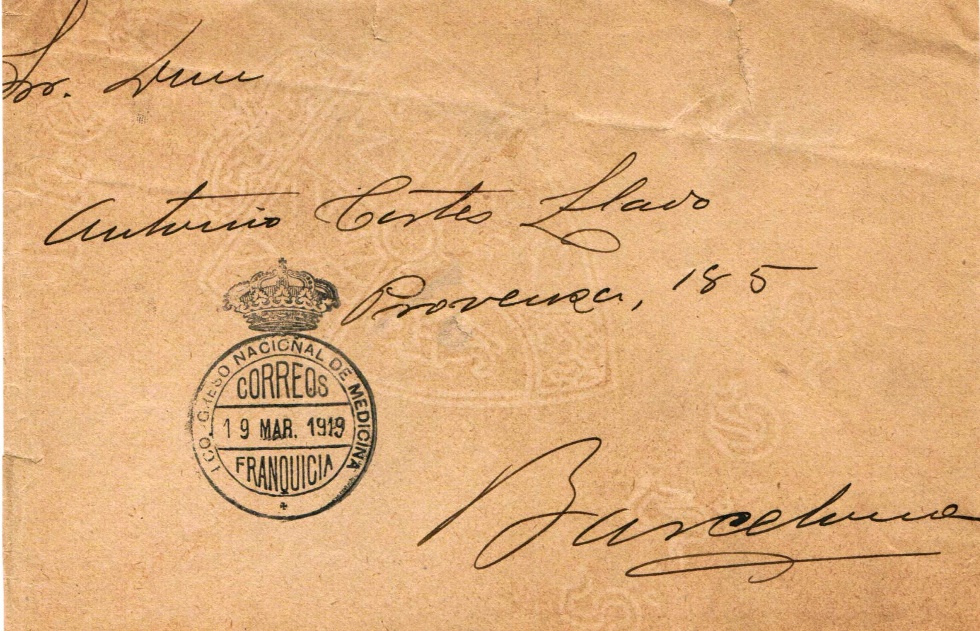 Sr. Dn
Antonio Cortés Llavo
Provenza, 185
CONGRESO NACIONAL DE MEDICINA
CORREOS
19 MAR. 1919
FRANQUICIA
Barcelona